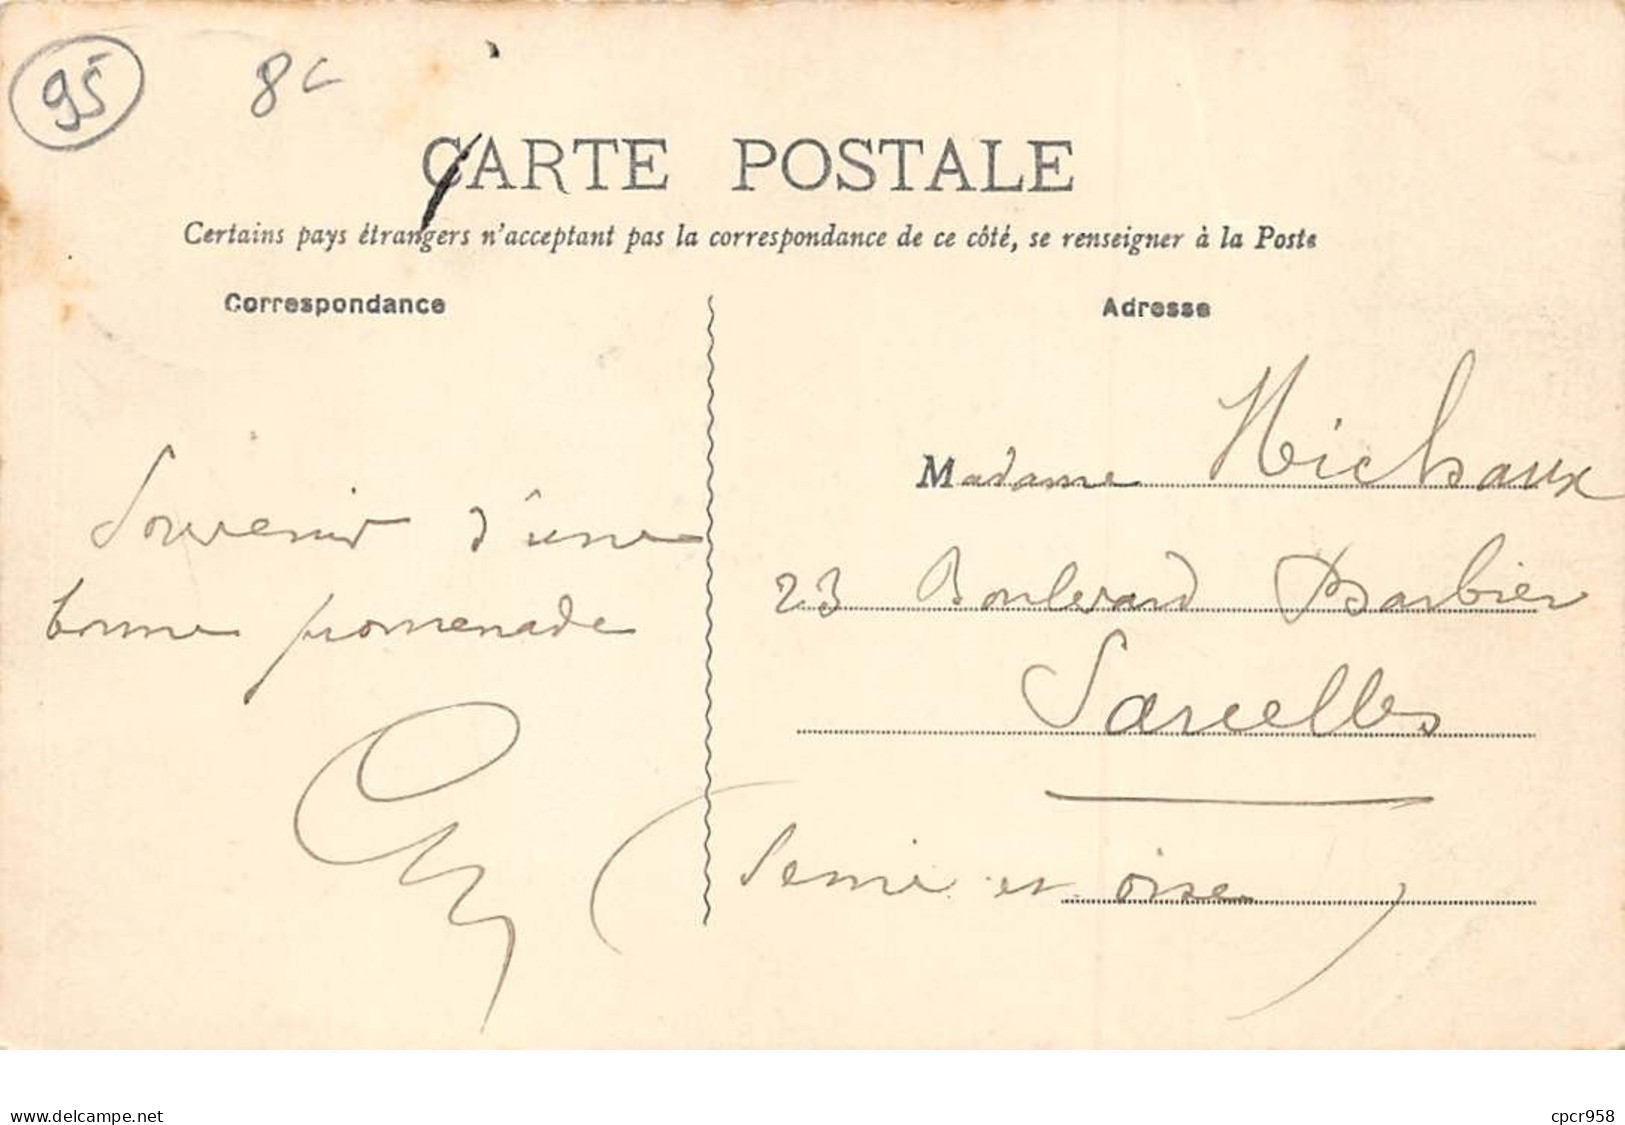 95
8c
CARTE POSTALE
Certains pays étrangers n'acceptant pas la correspondance de ce côté, se renseigner à la Poste
Correspondance
Adresse
Souvenir d'une
bonne promenade
Madame Michaux
23 Boulevard Barbier
Sarcelles
(Seine et Oise)
www.delcampe.net
cpcr958